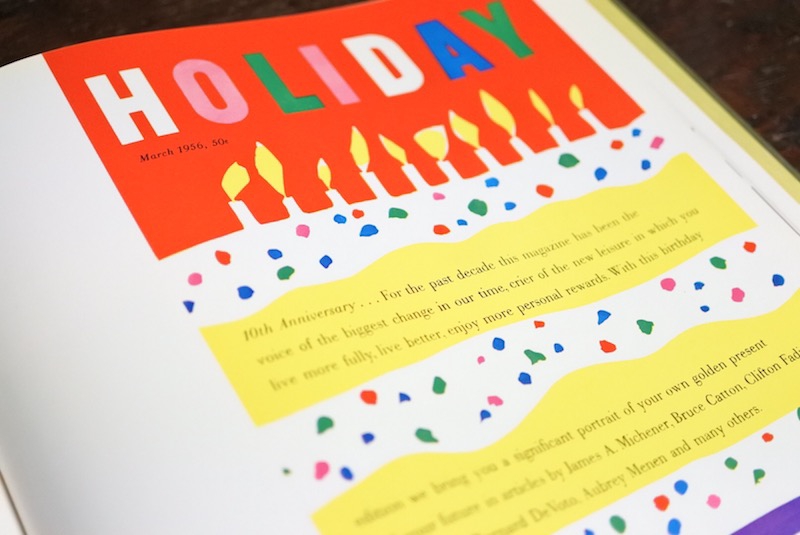 HOLIDAY
March 1956, 50¢
10th Anniversary . . . For the past decade this magazine has been the
voice of the biggest change in our time, crier of the new leisure in which you
live more fully, live better, enjoy more personal rewards. With this birthday
edition we bring you a significant portrait of your own golden present
future in articles by James A. Michener, Bruce Catton, Clifton
DeVoto, Aubrey Menen and many others.